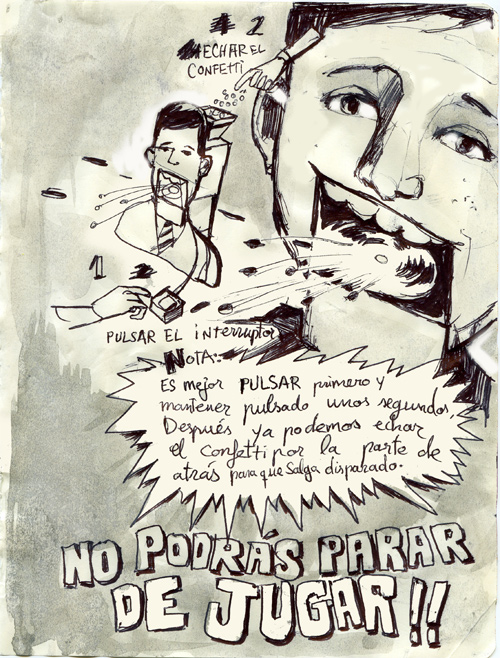 2
ECHAR EL
CONFETTI
1
PULSAR EL interruptor
NOTA:
ES mejor PULSAR primero y
mantener pulsado unos segundos,
Después ya podemos echar
el confetti por la parte de
atrás para que salga disparado.
NO PODRÁS PARAR
DE JUGAR!!